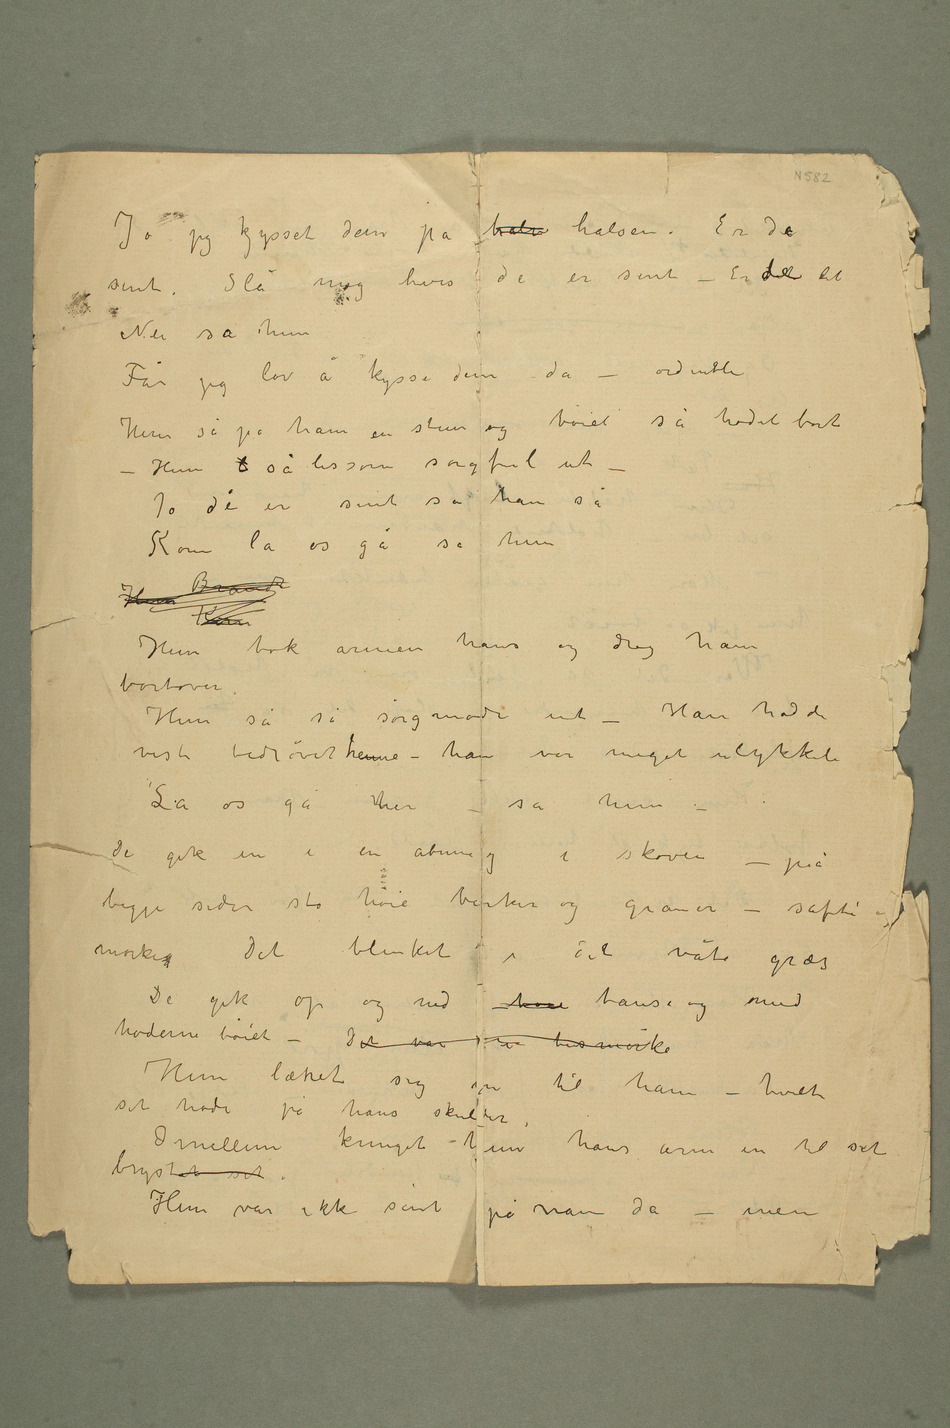 N 582
Jo jeg kysset dem på halv halsen. Er de
sint. Slå mig hvis de er sint – Er de det
Nei sa hun
Får jeg lov å kysse dem da – ordentli
Hun så på ham en stun og bøiet så hodet bort
– Hun så lissom sorgful ut –
Jo de er sint sa han så
Kom la os gå sa hun
Hun Brandt
Kom
Hun tok armen hans og drog ham
bortover.
Hun så så sørgmodi ut – Han hadde
vist bedrøvet henne – han var meget ulykkeli
La os gå her – sa hun –
De gik in i en åbning i skoven – på
begge sider sto høie birker og graner – safti og
mørke Det blinket i det våte græs
De gik op og ned – tause og med
hoderne bøiet – Det var bismørke
Hun lænet sig in til ham – hvilte
sit hode på hans skulder,
Imellem kruget hun hans arm in til sit
brystet sit.
Hun var ikk sint på ham da – men